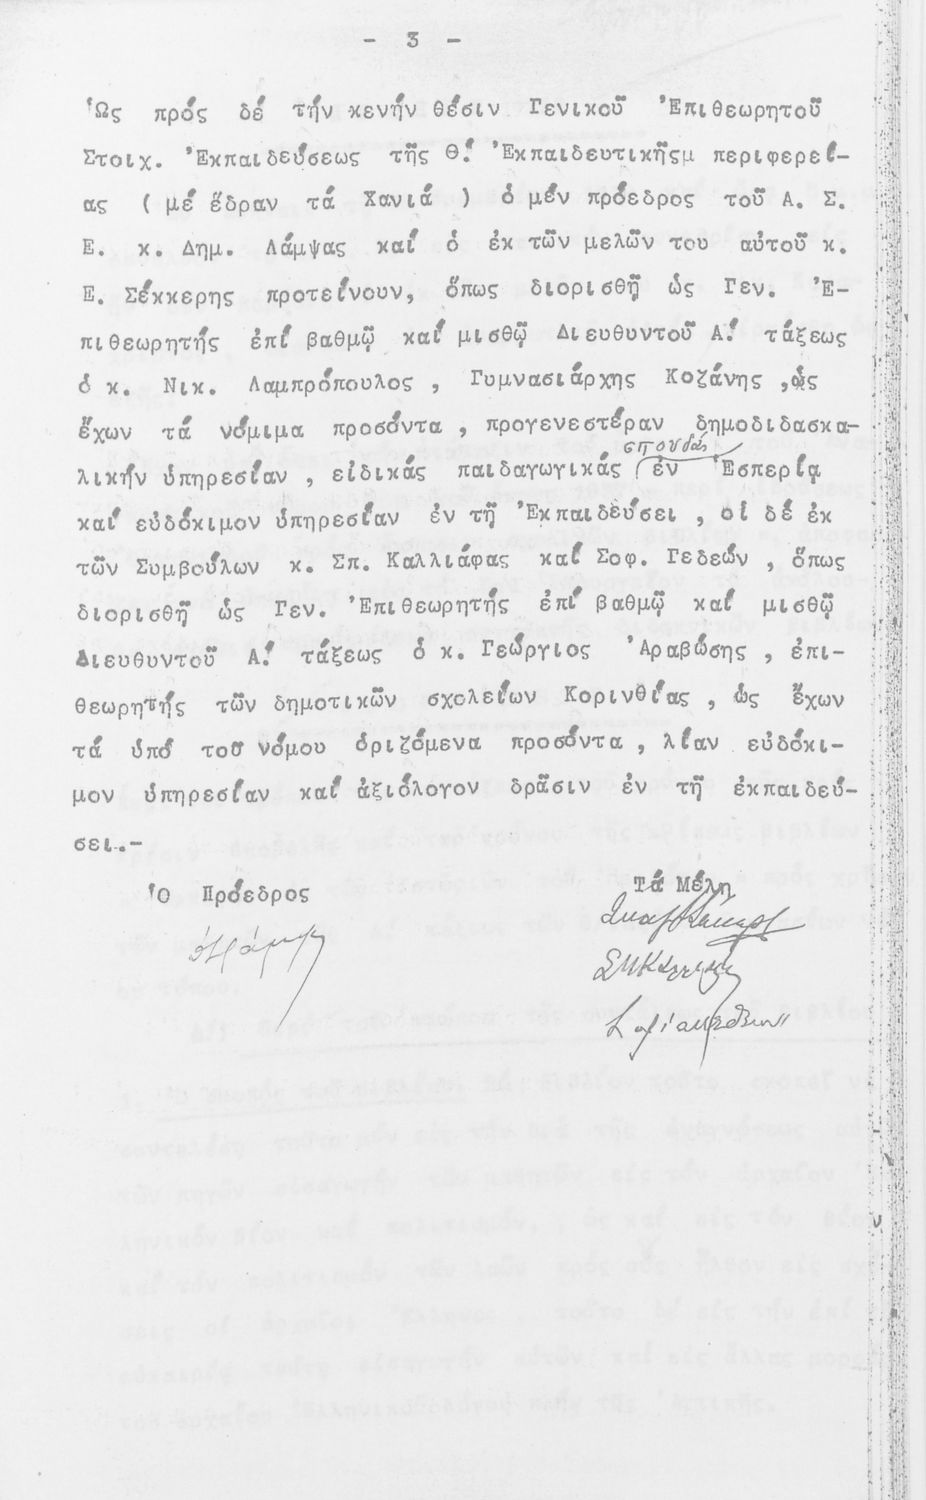 - 3 -
Ὡς πρός δέ τήν κενήν θέσιν Γενικοῦ Ἐπιθεωρητοῦ
Στοιχ. Ἐκπαιδεύσεως τῆς Θ! Ἐκπαιδευτικῆςμ περιφερεί-
ας ( μέ ἕδραν τά Χανιά ) ὁ μέν πρόεδρος τοῦ Α. Σ.
Ε. κ. Δημ. Λάμψας καί ὁ ἐκ τῶν μελῶν του αὐτοῦ κ.
Ε. Σέκκερης προτείνουν, ὅπως διορισθῇ ὡς Γεν. Ἐ-
πιθεωρητής ἐπί βαθμῷ καί μισθῷ Διευθυντοῦ Α! τάξεως
ὁ κ. Νικ. Λαμπρόπουλος , Γυμνασιάρχης Κοζάνης ,ὡς
ἔχων τά νόμιμα προσόντα , προγενεστέραν δημοδιδασκα-
σπουδάς
λικήν ὑπηρεσίαν , εἰδικάς παιδαγωγικάς ἐν Ἑσπερίᾳ
καί εὐδόκιμον ὑπηρεσίαν ἐν τῇ Ἐκπαιδεύσει , οἱ δέ ἐκ
τῶν Συμβούλων κ. Σπ. Καλλιάφας καί Σοφ. Γεδεών , ὅπως
διορισθῇ ὡς Γεν. Ἐπιθεωρητής ἐπί βαθμῷ καί μισθῷ
Διευθυντοῦ Α! τάξεως ὁ κ. Γεώργιος Ἀραβώσης , ἐπι-
θεωρητής τῶν δημοτικῶν σχολείων Κορινθίας , ὡς ἔχων
τά ὑπό του νόμου ὁριζόμενα προσόντα , λίαν εὐδόκι-
μον ὑπηρεσίαν καί ἀξιόλογον δρᾶσιν ἐν τῇ ἐκπαιδεύ-
σει.-
Ὁ Πρόεδρος Τά Μέλη